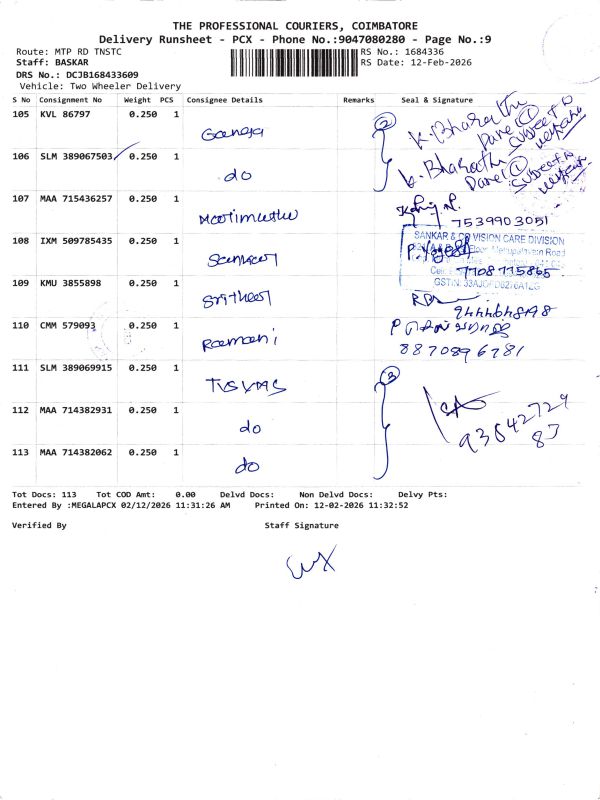 THE PROFESSIONAL COURIERS, COIMBATORE
Delivery Runsheet - PCX - Phone No.:9047080280 - Page No.:9
Route: MTP RD TNSTC RS No.: 1684336
Staff: BASKAR RS Date: 12-Feb-2026
DRS No.: DCJB168433609
Vehicle: Two Wheeler Delivery
S No Consignment No Weight PCS Consignee Details Remarks Seal & Signature
105 KVL 86797 0.250 1 Ganga 2 K. Bharathi
106 SLM 389067503 0.250 1 do K. Bharathi
107 MAA 715436257 0.250 1 Marimuthu
7539903051
108 IXM 509785435 0.250 1 Sankar
SANKAR & CO VISION CARE DIVISION
7708775865
109 KMU 3855898 0.250 1 Sritheer
9444648198
110 CMM 579093 0.250 1 Ramani
8870896781
111 SLM 389069915 0.250 1 TVS VMS 3
112 MAA 714382931 0.250 1 do
93642729
83
113 MAA 714382062 0.250 1 do
Tot Docs: 113 Tot COD Amt: 0.00 Delvd Docs: Non Delvd Docs: Delvy Pts:
Entered By :MEGALAPCX 02/12/2026 11:31:26 AM Printed On: 12-02-2026 11:32:52
Verified By Staff Signature